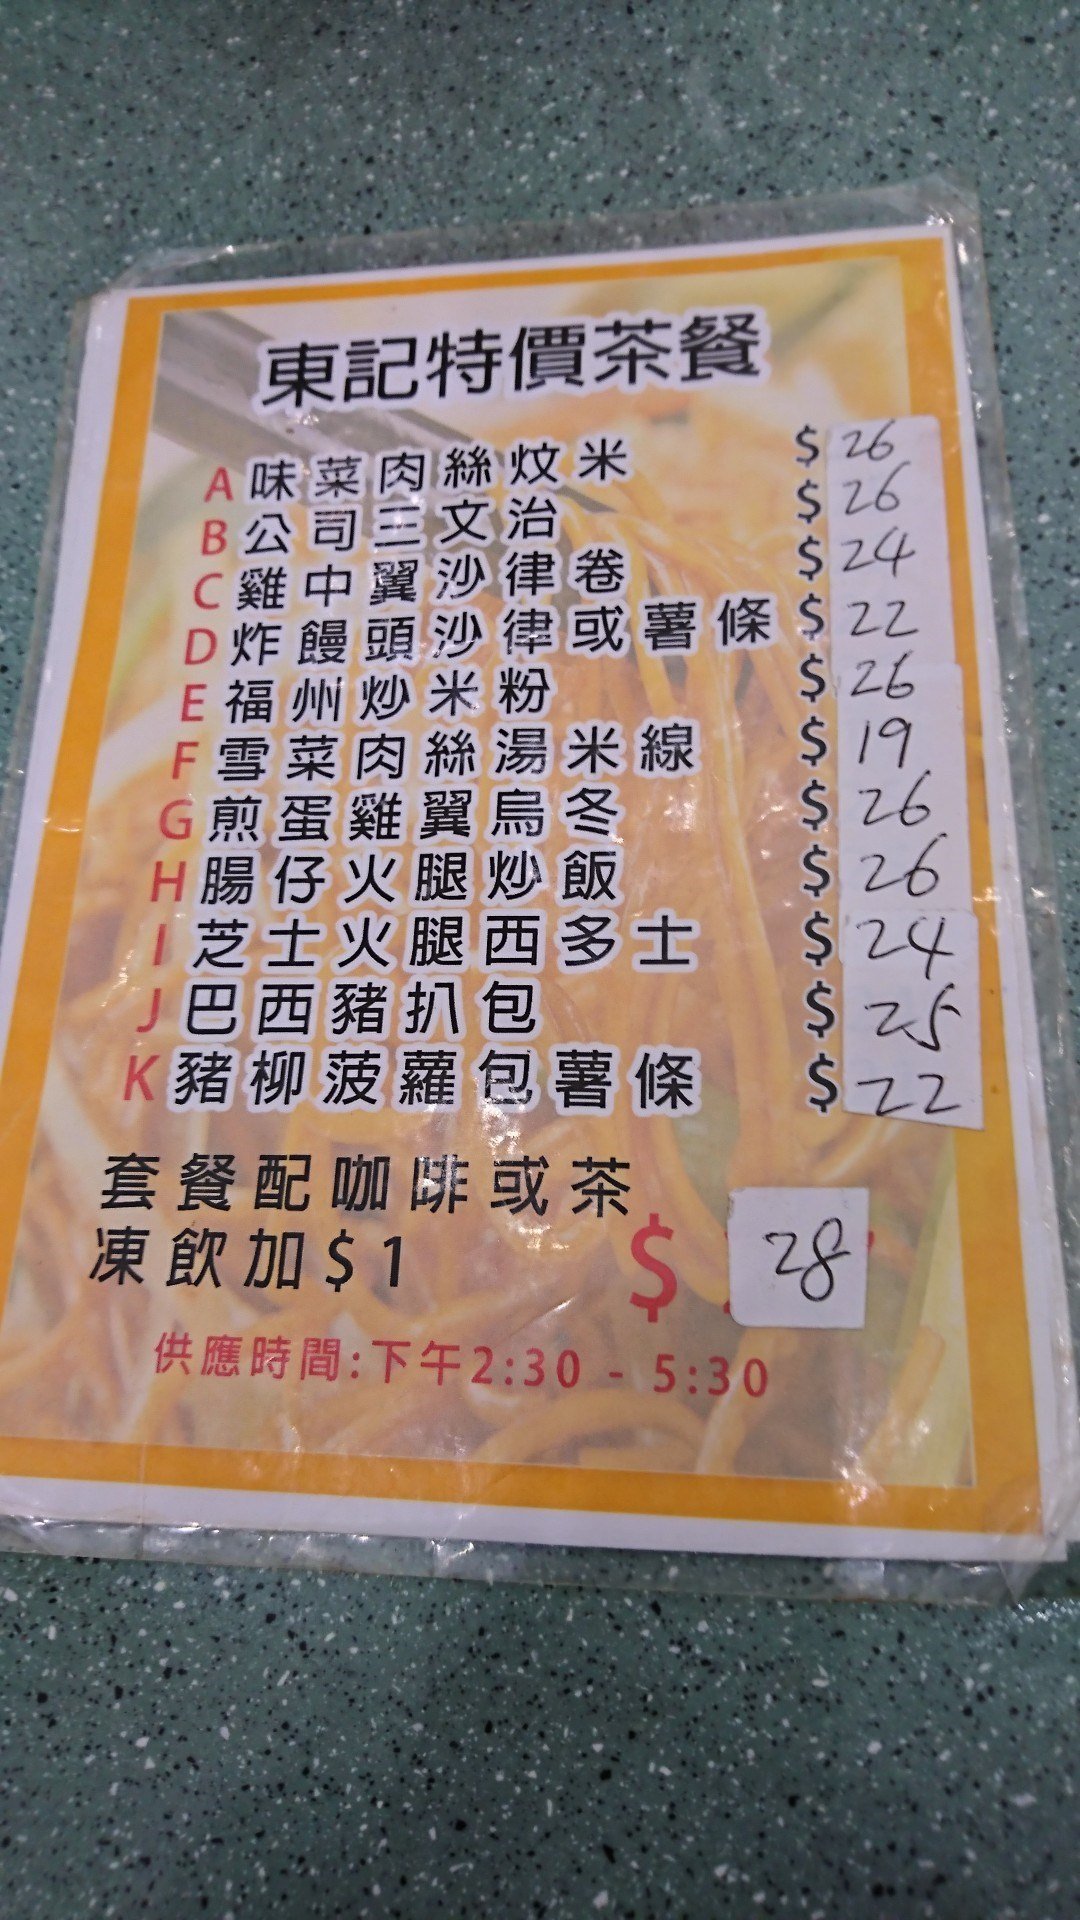 東記特價茶餐
A 味菜肉絲炆米 $ 26
B 公司三文治 $ 26
C 雞中翼沙律卷 $ 24
D 炸饅頭沙律或薯條 $ 22
E 福州炒米粉 $ 26
F 雪菜肉絲湯米線 $ 19
G 煎蛋雞翼烏冬 $ 26
H 腸仔火腿炒飯 $ 26
I 芝士火腿西多士 $ 24
J 巴西豬扒包 $ 25
K 豬柳菠蘿包薯條 $ 22
套餐配咖啡或茶
凍飲加$1 $ 28
供應時間:下午2:30 - 5:30